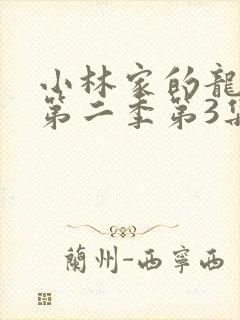 小林家的龍
第二季第3集
蘭州-西寧西